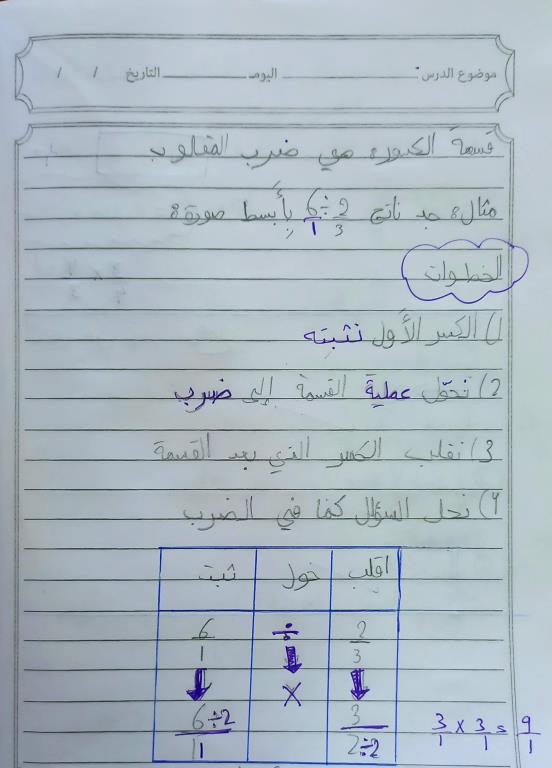 موضوع الدرس: اليوم التاريخ / /
قسمة الكسور هي ضرب المقلوب
مثال: جد ناتج 6/1 ÷ 2/3 بأبسط صورة:
الخطوات
1) الكسر الأول نثبته
2) نحوّل عملية القسمة إلى ضرب
3) نقلب الكسر الذي بعد القسمة
4) نحل السؤال كما في الضرب
اقلب حول ثبت
6/1 ÷ 2/3
×
6÷2/1 3/2÷2
3/1 × 3/1 = 9/1